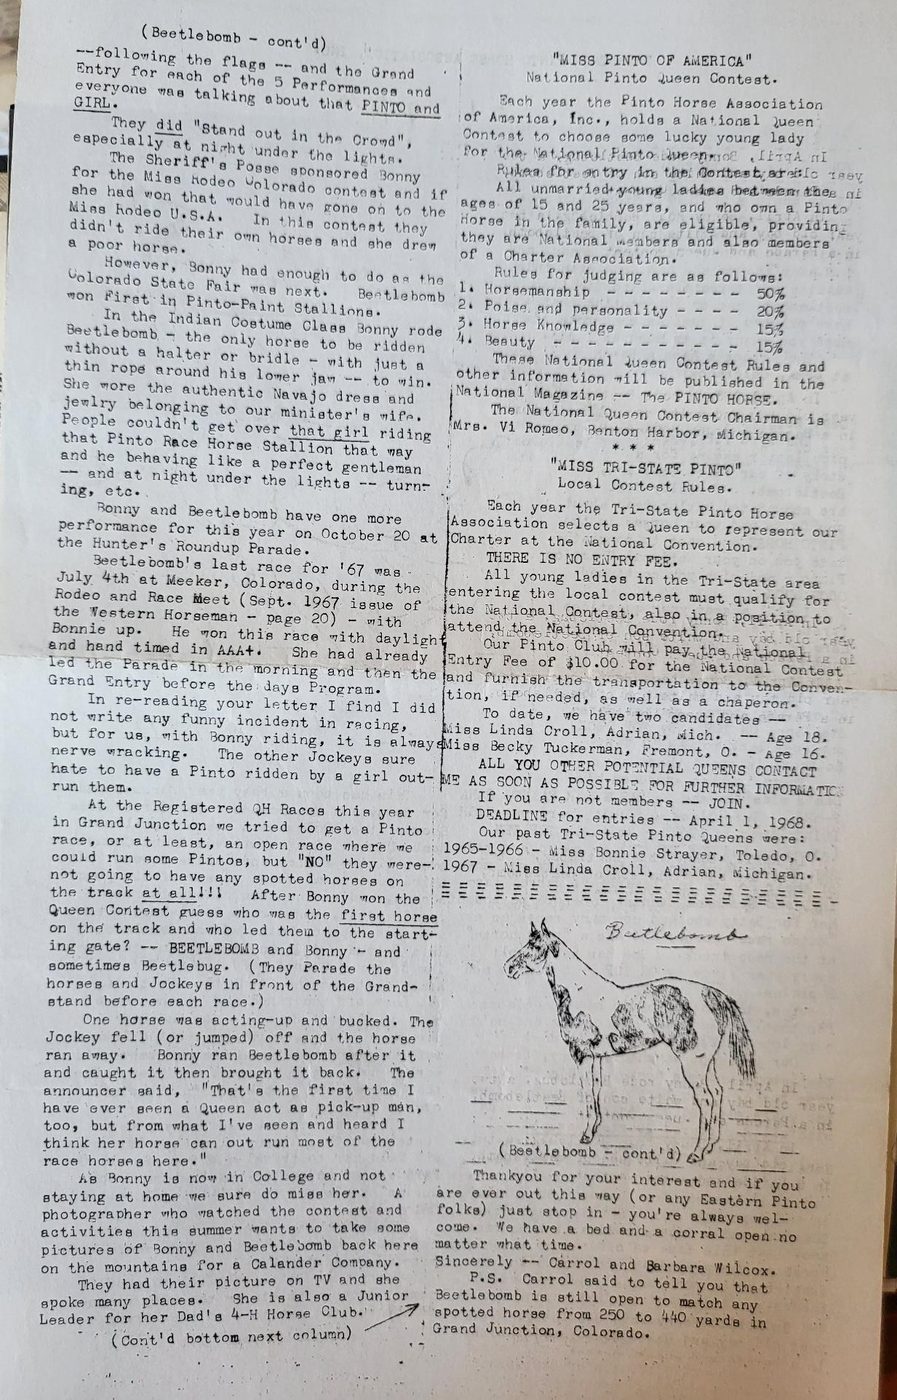 (Beetlebomb - cont'd)
--following the flags -- and the Grand
Entry for each of the 5 Performances and
everyone was talking about that PINTO and
GIRL.
They did "Stand out in the Crowd",
especially at night under the lights.
The Sheriff's Posse sponsored Bonny
for the Miss Rodeo Colorado contest and if
she had won that would have gone on to the
Miss Rodeo U.S.A. In this contest they
didn't ride their own horses and she drew
a poor horse.
However, Bonny had enough to do as the
Colorado State Fair was next. Beetlebomb
won first in Pinto-Paint Stallions.
In the Indian Costume Class Bonny rode
Beetlebomb - the only horse to be ridden
without a halter or bridle - with just a
thin rope around his lower jaw -- to win.
She wore the authentic Navajo dress and
jewlry belonging to our minister's wife.
People couldn't get over that girl riding
that Pinto Race Horse Stallion that way
and he behaving like a perfect gentleman
-- and at night under the lights -- turn-
ing, etc.
Bonny and Beetlebomb have one more
performance for this year on October 20 at
the Hunter's Roundup Parade.
Beetlebomb's last race for '67 was
July 4th at Meeker, Colorado, during the
Rodeo and Race Meet (Sept. 1967 issue of
the Western Horseman - page 20) - with
Bonnie up. He won this race with daylight
and hand timed in AAA+. She had already
led the Parade in the morning and then the
Grand Entry before the days Program.
In re-reading your letter I find I did
not write any funny incident in racing,
but for us, with Bonny riding, it is always
nerve wracking. The other Jockeys sure
hate to have a Pinto ridden by a girl out-
run them.
At the Registered QH Races this year
in Grand Junction we tried to get a Pinto
race, or at least, an open race where we
could run some Pintos, but "NO" they were-
not going to have any spotted horses on
the track at all!!! After Bonny won the
Queen Contest guess who was the first horse
on the track and who led them to the start-
ing gate? -- BEETLEBOMB and Bonny - and
sometimes Beetlebug. (They Parade the
horses and Jockeys in front of the Grand-
stand before each race.)
One horse was acting-up and bucked. The
Jockey fell (or jumped) off and the horse
ran away. Bonny ran Beetlebomb after it
and caught it then brought it back. The
announcer said, "That's the first time I
have ever seen a Queen act as pick-up man,
too, but from what I've seen and heard I
think her horse can out run most of the
race horses here."
As Bonny is now in College and not
staying at home we sure do miss her. A
photographer who watched the contest and
activities this summer wants to take some
pictures of Bonny and Beetlebomb back here
on the mountains for a Calander Company.
They had their picture on TV and she
spoke many places. She is also a Junior
Leader for her Dad's 4-H Horse Club.
(Cont'd bottom next column)
"MISS PINTO OF AMERICA"
National Pinto Queen Contest.
Each year the Pinto Horse Association
of America, Inc., holds a National Queen
Contest to choose some lucky young lady
for the National Pinto Queen.
Rules for entry in the Contest are:
All unmarried young ladies between the
ages of 15 and 25 years, and who own a Pinto
Horse in the family, are eligible, providing
they are National members and also members
of a Charter Association.
Rules for judging are as follows:
1. Horsemanship - - - - - - - - 50%
2. Poise and personality - - - - 20%
3. Horse Knowledge - - - - - - 15%
4. Beauty - - - - - - - - - - 15%
These National Queen Contest Rules and
other information will be published in the
National Magazine -- The PINTO HORSE.
The National Queen Contest Chairman is
Mrs. Vi Romeo, Benton Harbor, Michigan.
* * *
"MISS TRI-STATE PINTO"
Local Contest Rules.
Each year the Tri-State Pinto Horse
Association selects a Queen to represent our
Charter at the National Convention.
THERE IS NO ENTRY FEE.
All young ladies in the Tri-State area
entering the local contest must qualify for
the National Contest, also in a position to
attend the National Convention.
Our Pinto Club will pay the National
Entry Fee of $10.00 for the National Contest
and furnish the transportation to the Conven-
tion, if needed, as well as a chaperon.
To date, we have two candidates --
Miss Linda Croll, Adrian, Mich. -- Age 18.
Miss Becky Tuckerman, Fremont, O. - Age 16.
ALL YOU OTHER POTENTIAL QUEENS CONTACT
ME AS SOON AS POSSIBLE FOR FURTHER INFORMATIC
If you are not members -- JOIN.
DEADLINE for entries -- April 1, 1968.
Our past Tri-State Pinto Queens were:
1965-1966 - Miss Bonnie Strayer, Toledo, O.
1967 - Miss Linda Croll, Adrian, Michigan.
Beetlebomb
(Beetlebomb - cont'd)
Thankyou for your interest and if you
are ever out this way (or any Eastern Pinto
folks) just stop in - you're always wel-
come. We have a bed and a corral open no
matter what time.
Sincerely -- Carrol and Barbara Wilcox.
P.S. Carrol said to tell you that
Beetlebomb is still open to match any
spotted horse from 250 to 440 yards in
Grand Junction, Colorado.